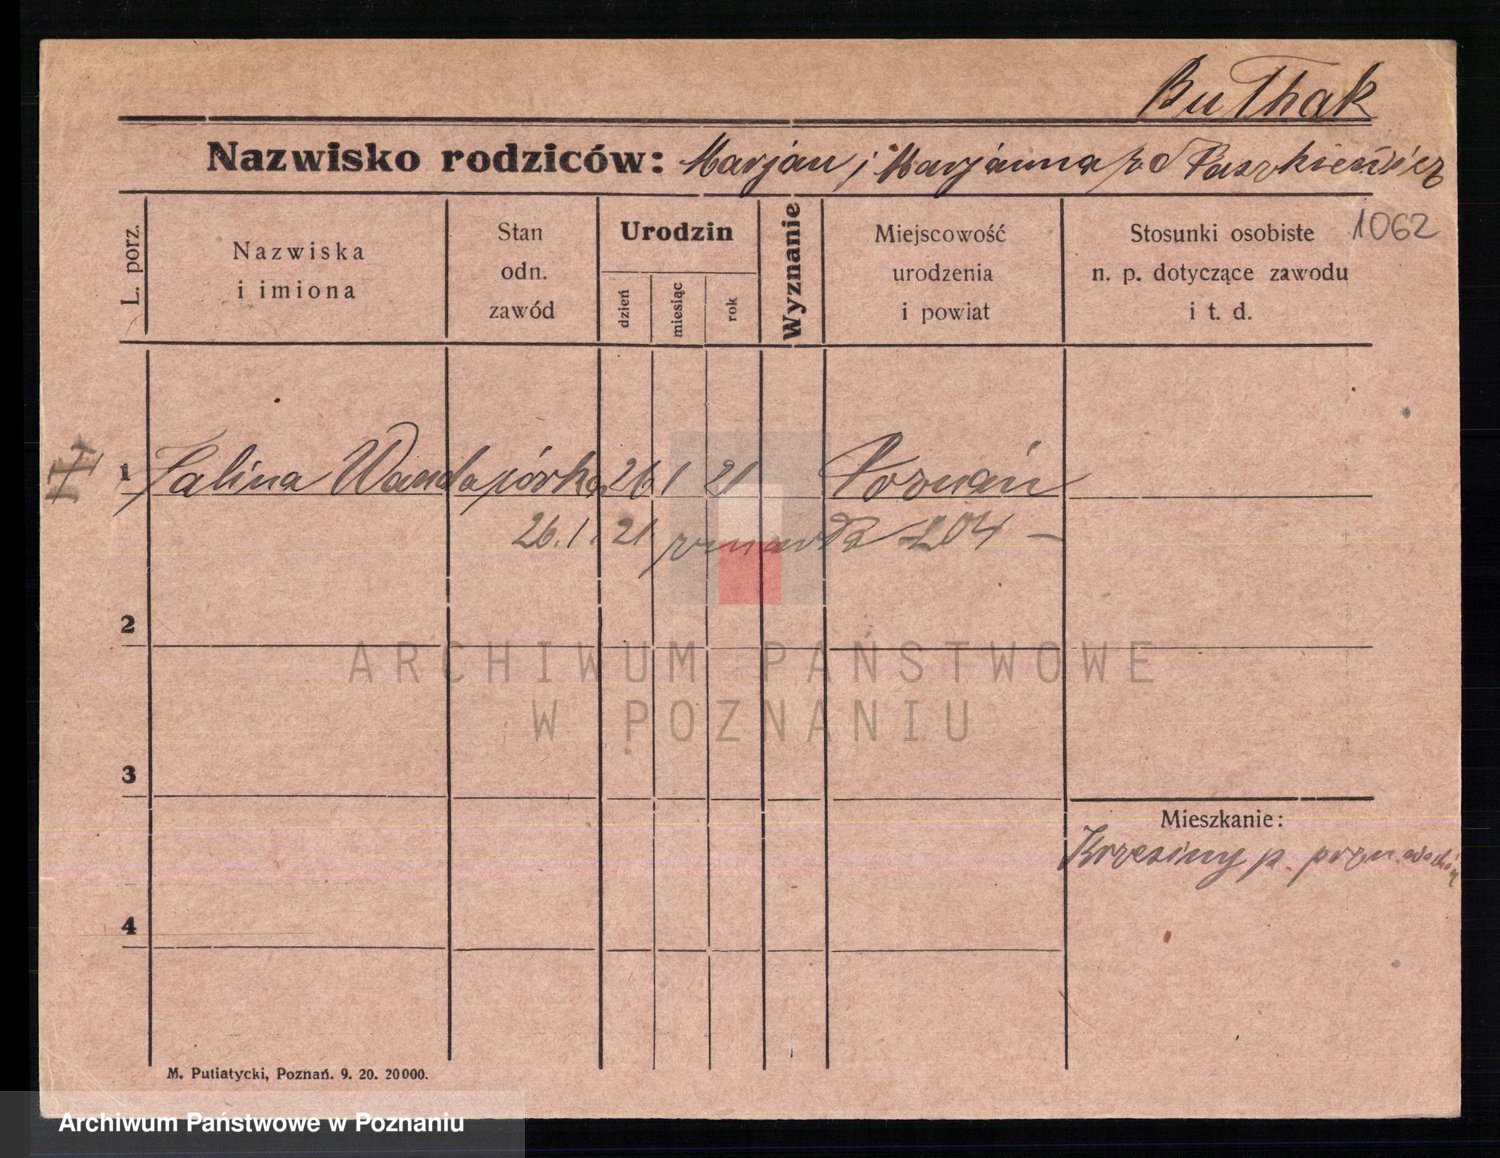 Buthak
Nazwisko rodziców: Marjan i Marjanna zd Paszkiewicz
1062
L. porz.
Nazwiska
i imiona
Stan
odn.
zawód
Urodzin
dzień
miesiąc
rok
Wyznanie
Miejscowość
urodzenia
i powiat
Stosunki osobiste
n. p. dotyczące zawodu
i t. d.
1 Halina Wanda córka 26 1 21 Poznań
26.1.21 204 —
2
ARCHIWUM PAŃSTWOWE
W POZNANIU
3
Mieszkanie:
Krzesiny p.
4
M. Putiatycki, Poznań. 9. 20. 20000.
Archiwum Państwowe w Poznaniu